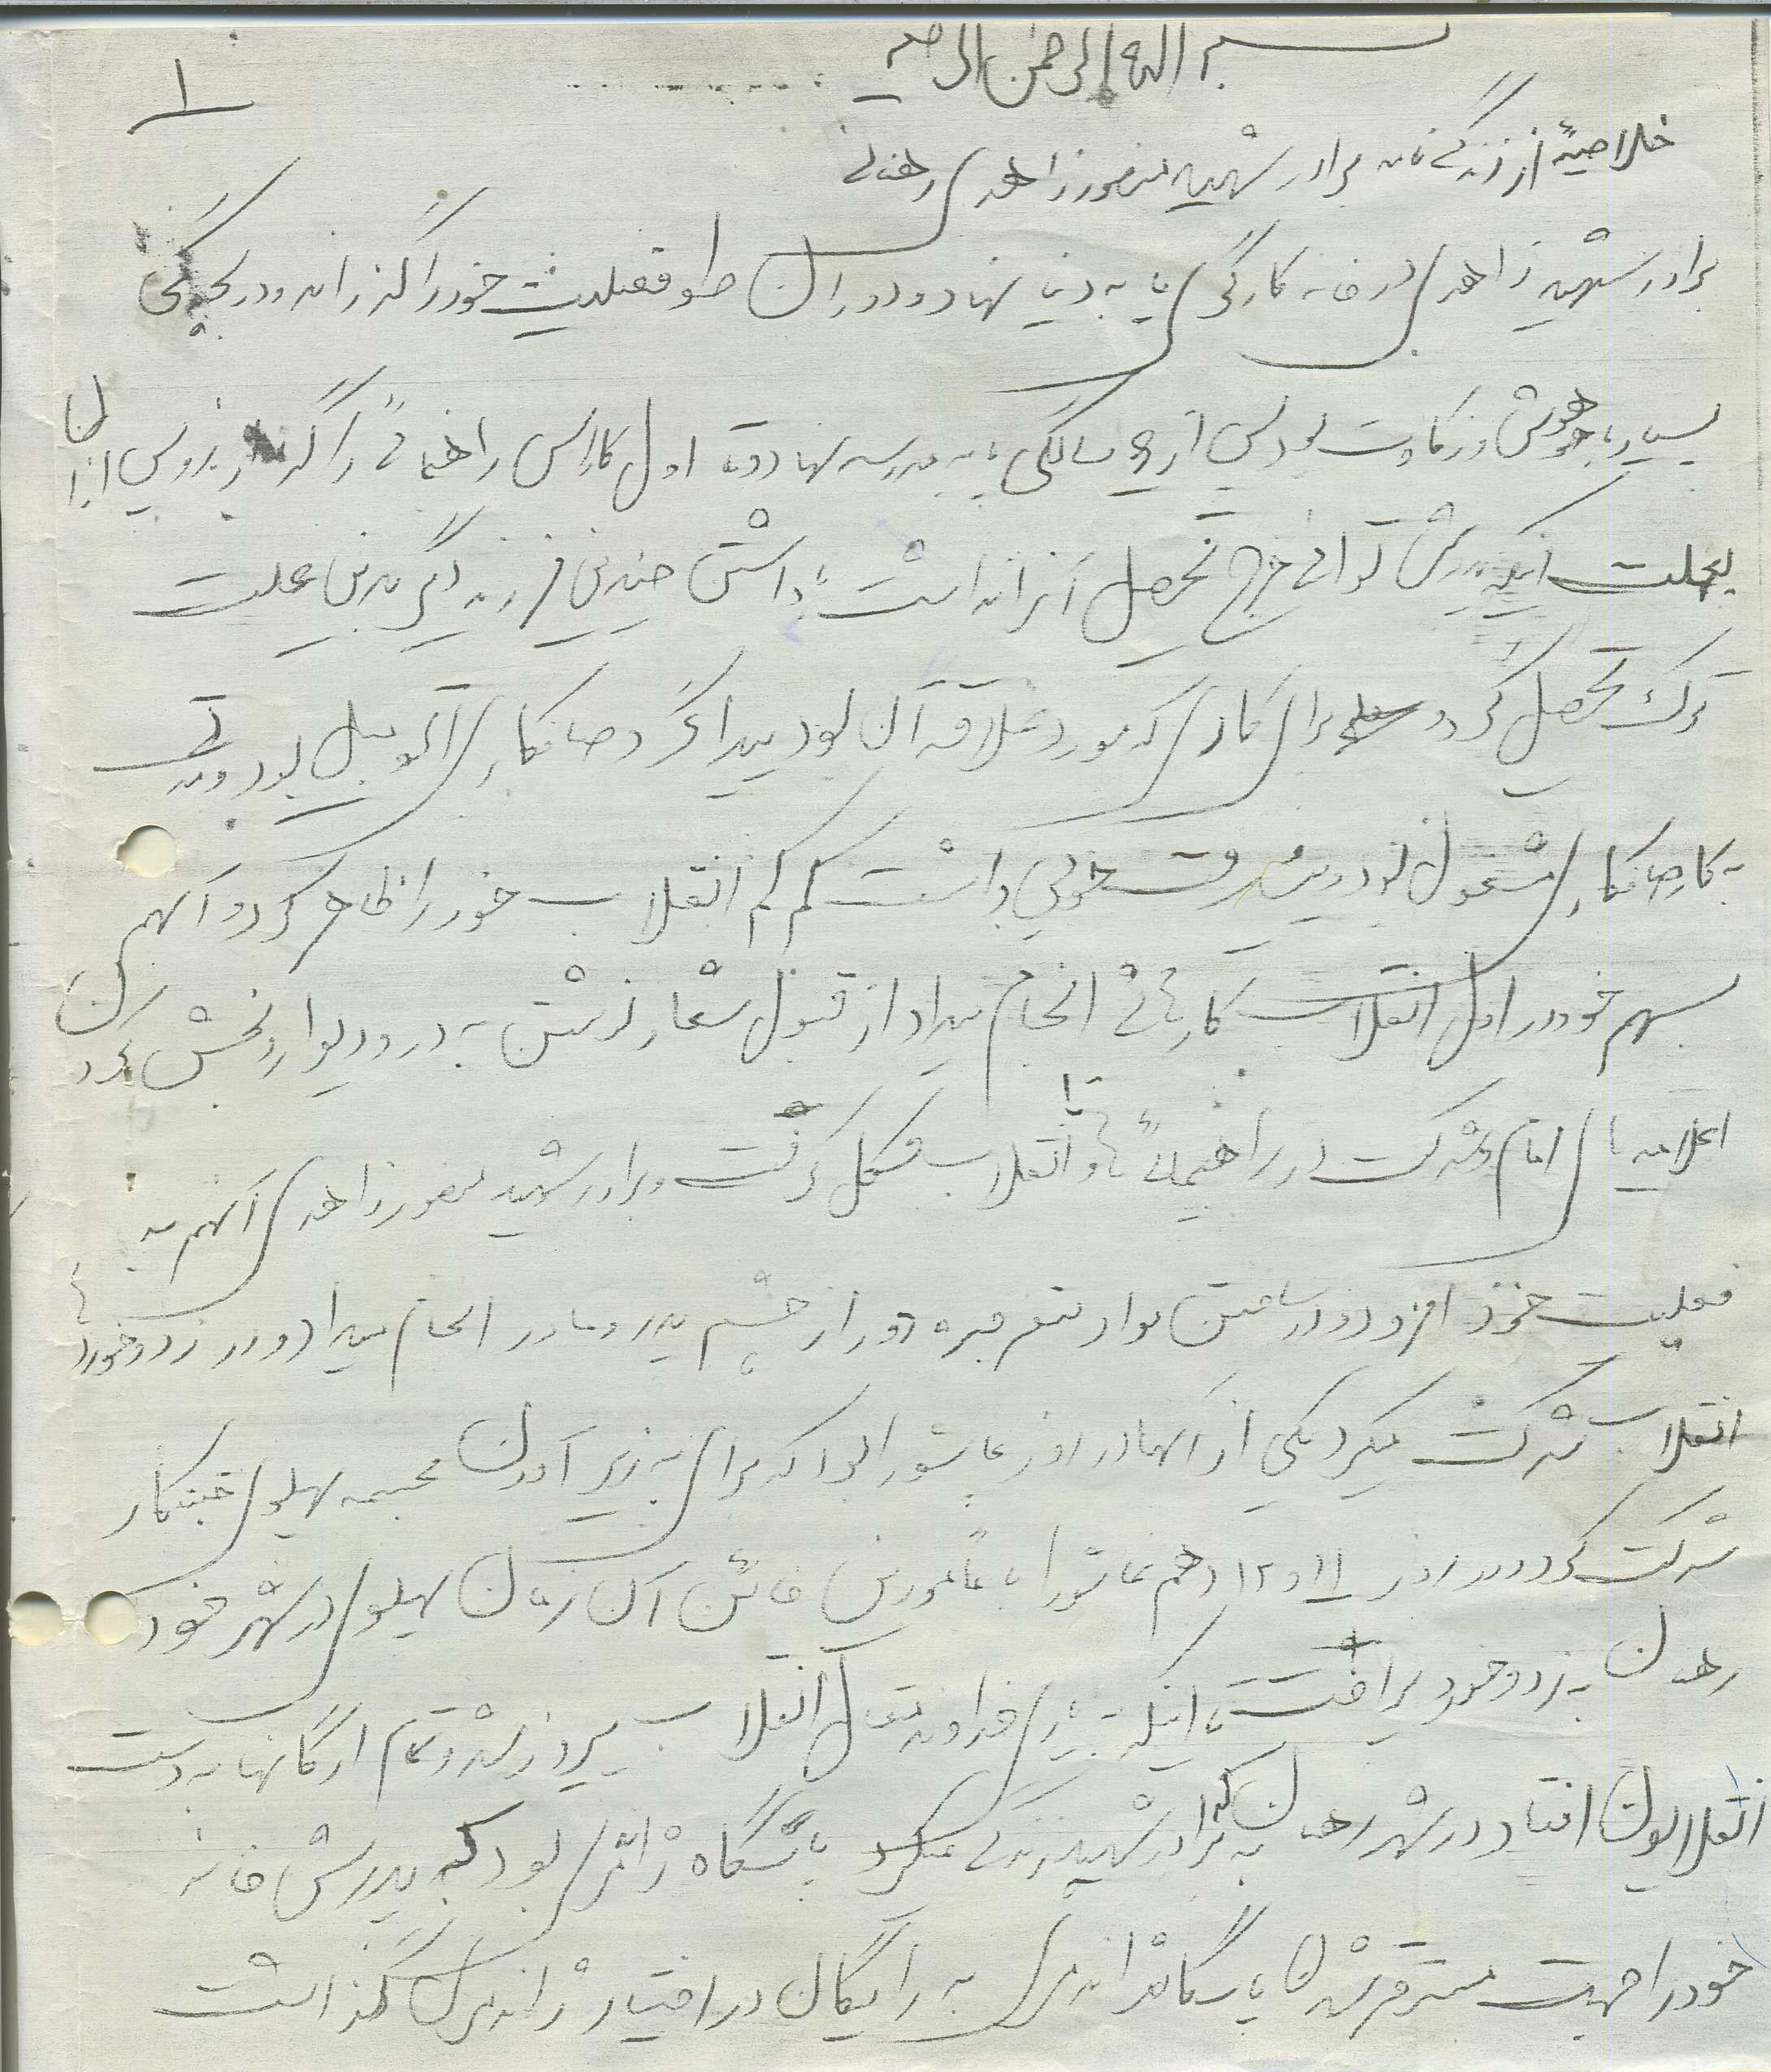 بسم الله الرحمن الرحیم
۱
خلاصهٔ از زندگی نامه برادر شهید منصور زاهدی رهنانی
برادر شهید زاهدی در خانه کارگری پا به دنیا نهاد و دوران طفولیت خود را گذرانه و در بچگی
بسیار با هوش و زکاوت بود پس از سالگی پا به مدرسه نهاد و تا اول کلاس راهنمائی را گذراند و پس از آن
بعلت اینکه پدرش توانی خرج تحصیل آنرا نداشت با داشتن چندین فرزند دیگر بدین علت
ترک تحصیل کرد و برای کاری که مورد علاقه آن بود پیدا کرد صافکاری اتومبیل بود و مدتی
به کار صافکاری مشغول بود و پیشرفت خوبی داشت کم کم انقلاب خود را ظاهر کرد و آنهم
بسهم خود در اول انقلاب کارهائی انجام میداد از قبیل شعار نوشتن به در و دیوار و پخش کردن
اعلامیه های امام و شرکت در راهپیمائی ها تا انقلاب شکل گرفت و برادر شهید منصور زاهدی آنهم به
فعلیت خود افزود و در ساختن مواد منفجره دور از چشم پدر و مادر انجام میداد و در زد و خوردها
انقلاب شرکت میکرد یکی از آنها در روز عاشورا بود که برای به زیر آوردن مجسمه پهلوی جنایتکار
شرکت کرد و در روز ۱۱ و ۱۲ دهم عاشورا با مأمورین خائن آن زمان پهلوی در شهر خود
رهنان به زد و خورد پرداخت تا اینکه به یاری خداوند متعال انقلاب پیروز شد و تمام ارگانها به دست
انقلابیون افتاد در شهر رهنان که برادر شهید زندگی میکرد پاسگاه ژاندارمری بود که پدرش خانه
خود را جهت مستقر شدن پاسگاه ژاندارمری به رایگان در اختیار ژاندارمری گذاشت